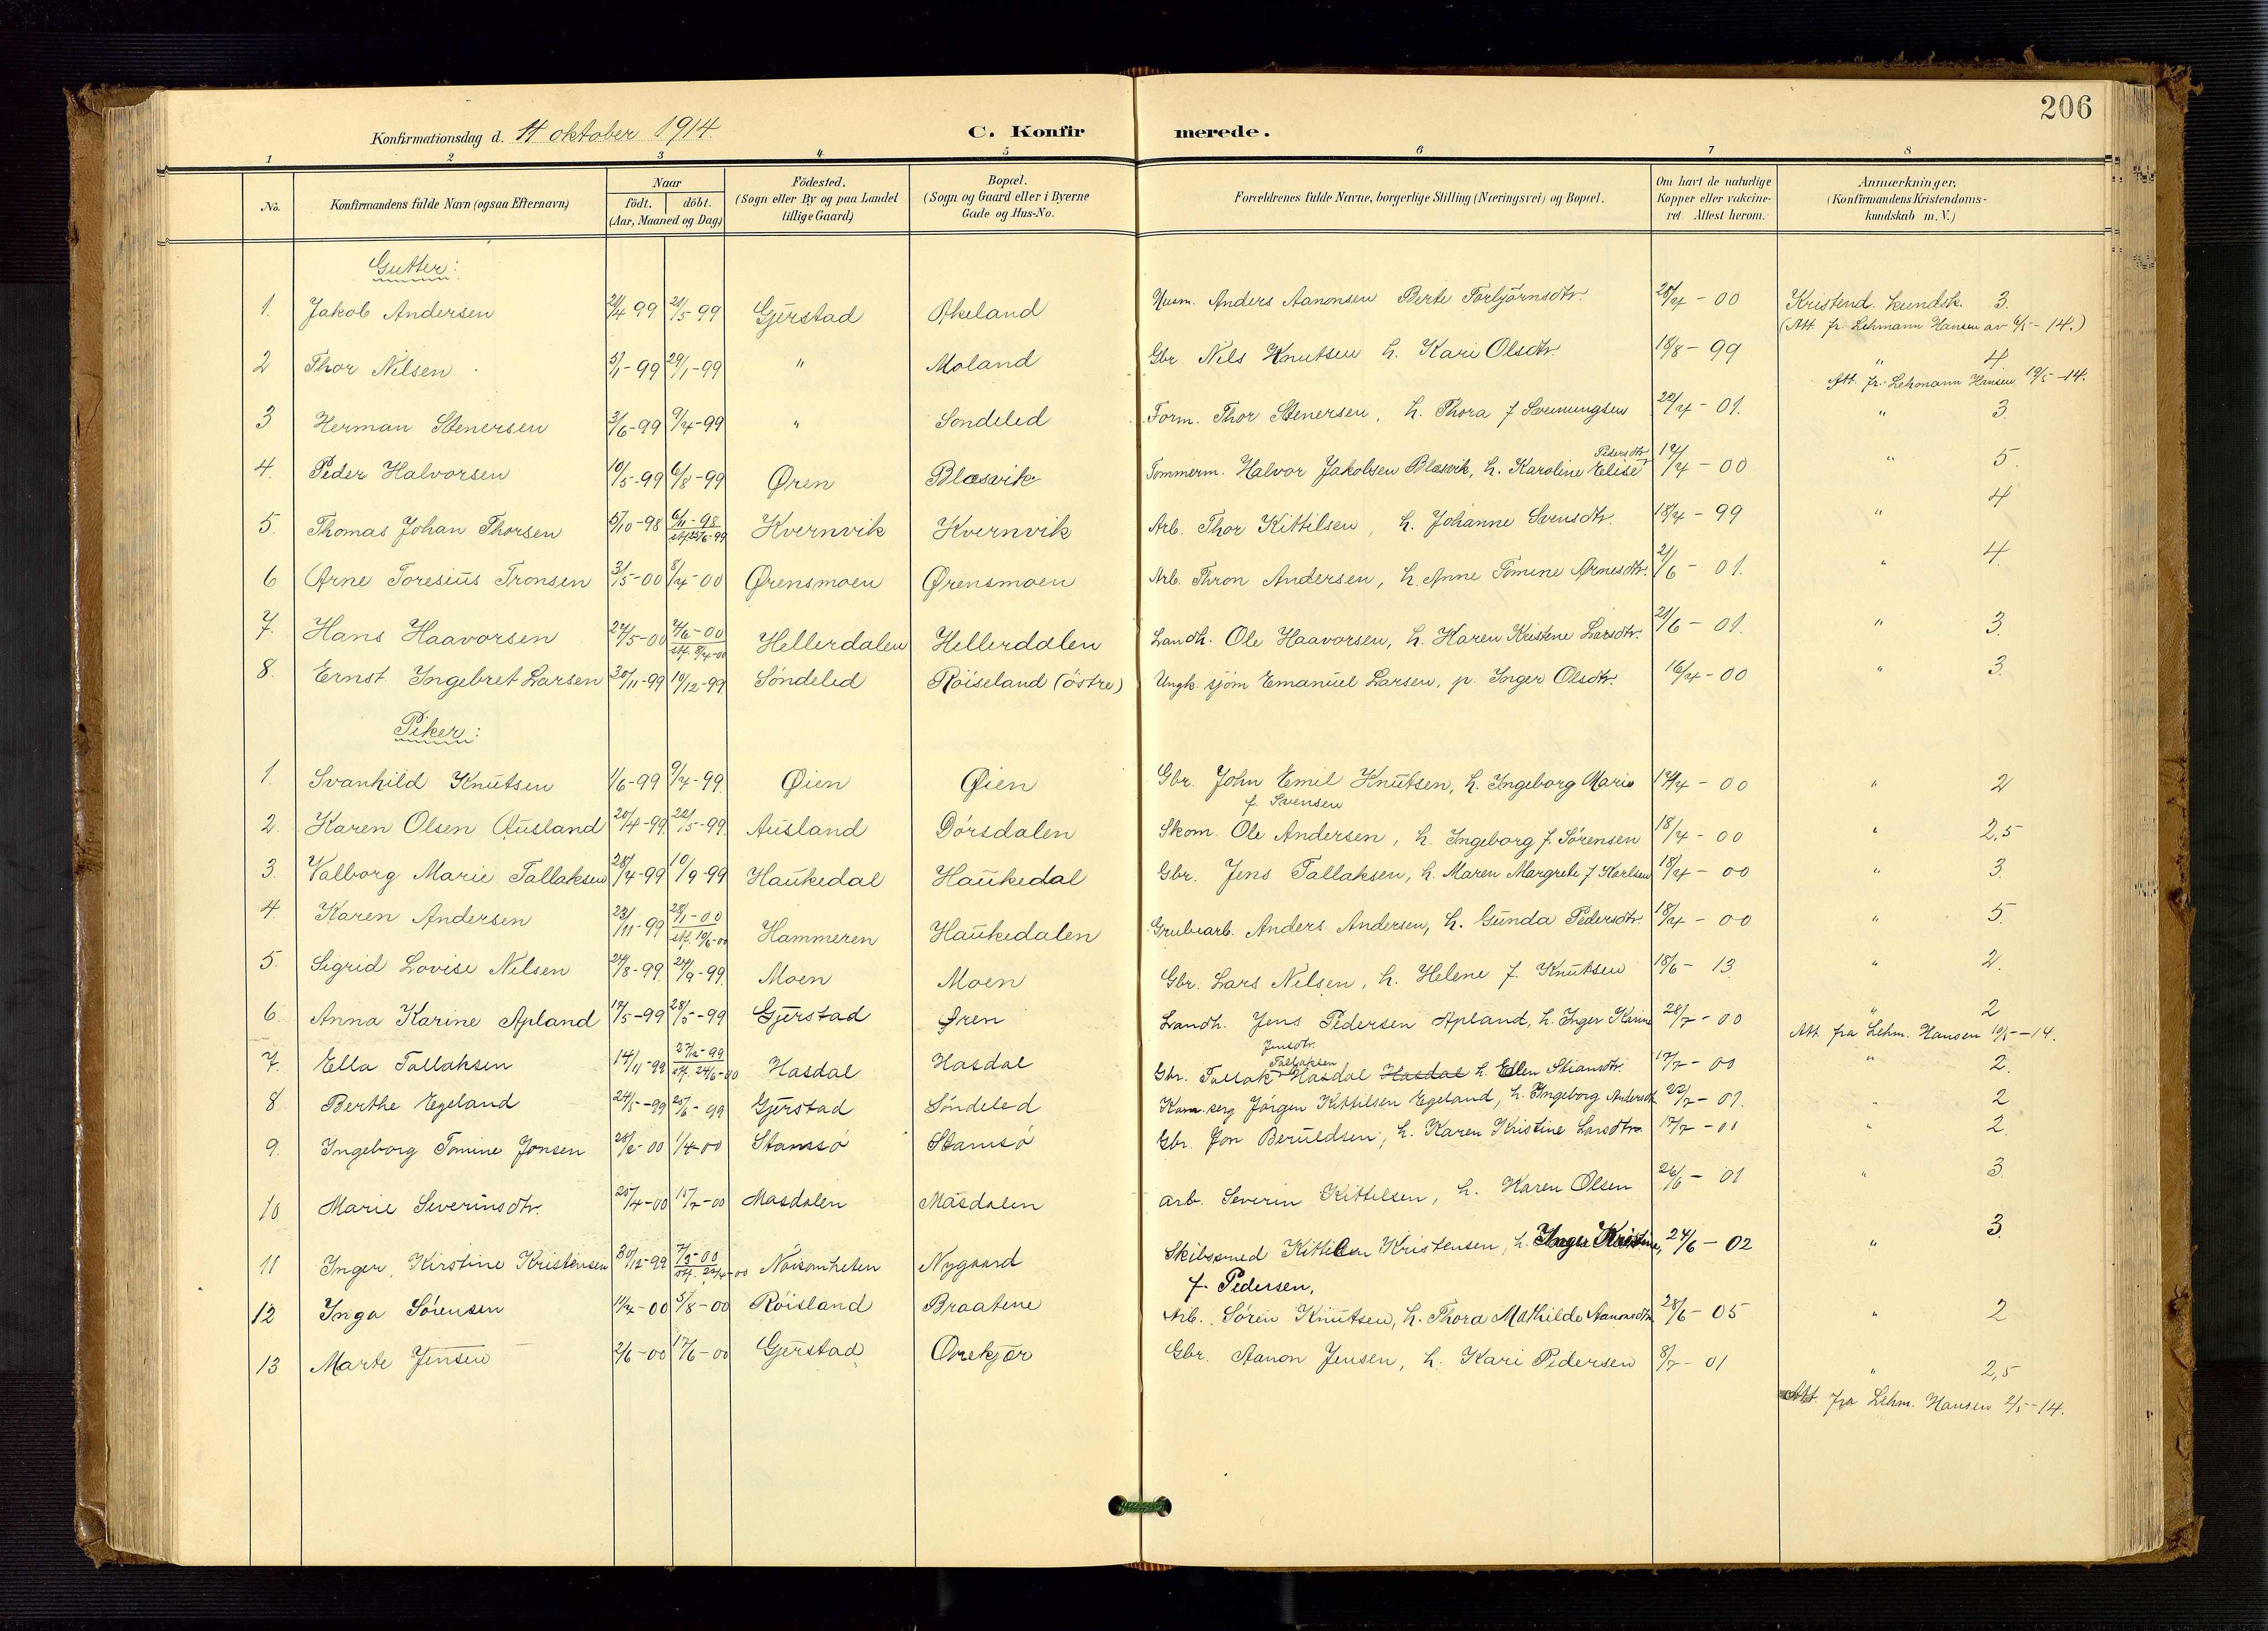 206
Konfirmationsdag d. 11 oktober 1914. C. Konfir merede.
1 2 3 4 5 6 7 8
No. Konfirmandens fulde Navn (ogsaa Efternavn) Naar födt. döbt. (Aar, Maaned og Dag) Födested. (Sogn eller By og paa Landet tillige Gaard) Bopæl. (Sogn og Gaard eller i Byerne Gade og Hus-No. Forældrenes fulde Navne, borgerlige Stilling (Næringsvei) og Bopæl. Om havt de naturlige Kopper eller vakcineret. Attest herom. Anmærkninger. (Konfirmandens Kristendomskundskab m. V.)
Gutter:
1. Jakob Andersen 21/4 99 21/5-99 Gjerstad Akeland Husm. Anders Aanonsen Berte Torbjörnsdtr. 28/4-00 Kristend. kundsk. 3.
(Att. fr. Lehmann Hansen av 6/5-14.)
2 Thor Nilsen 5/1-99 29/1-99 " Moland Gbr. Nils Knutsen h. Kari Olsdtr. 18/8-99 " 4
Att. fr. Lehmann Hansen 19/5-14.
3 Herman Stenersen 3/6-99 9/7-99 " Sondeled Form. Thor Stenersen, h. Thora f Sveinungsen 22/7-01. " 3.
4. Peder Halvorsen 10/5-99 6/8-99 Øren Blæsvik Tommerm. Halvor Jakobsen Blæsvik, h. Karoline Elise Pedersdtr. 19/7-00 " 5.
5. Thomas Johan Thorsen 5/10-98 6/11-98 stf. 25/6-99 Kvernvik Kvernvik Arb. Thor Kittilsen, h. Johanne Svensdtr. 18/7-99 " 4
6 Arne Toresius Tronsen 3/5-00 8/7-00 Ørensmoen Ørensmoen Arb. Thron Andersen, h. Anne Tomine Arnesdtr. 21/6-01. " 4.
7. Hans Haavorsen 27/5-00 4/6-00 stf. 8/7-00 Hellerdalen Hellerdalen Landh. Ole Haavorsen, h. Karen Kristine Larsdtr. 21/6-01. " 3.
8. Ernst Ingebret Larsen 30/11-99 10/12-99 Söndeled Röiseland (östre) Ungk. sjöm Emanuel Larsen, p. Inger Olsdtr. 16/7-00 " 3.
Piker:
1. Svanhild Knutsen 1/6-99 9/7-99 Øien Øien Gbr. John Emil Knutsen, h. Ingeborg Marie f. Svensen 17/7-00 " 2
2. Karen Olsen Ausland 20/4-99 22/5-99 Ausland Dörsdalen Skom. Ole Andersen, h. Ingeborg f. Sörensen 18/7-00 " 2,5
3. Valborg Marie Tallaksen 28/7-99 10/9-99 Haukedal Haukedal Gbr. Jens Tallaksen, h. Maren Margrete f Karlsen 18/7-00 " 3.
4. Karen Andersen 23/11-99 28/1-00 stf. 10/6-00 Hammeren Haukedalen Grubearb. Anders Andersen, h. Gunda Pedersdtr. 18/7-00 " 5.
5. Sigrid Lovise Nilsen 24/8-99 24/9-99 Moen Moen Gbr. Lars Nilsen, h. Helene f. Knutsen 18/6-13 " 2.
6. Anna Karine Apland 18/5-99 28/5-99 Gjerstad Øren Landh. Jens Pedersen Apland, h. Inger Karine Jensdtr. 28/7-00 " 2
Att. fra Lehm. Hansen 10/5-14.
7. Ella Tallaksen 14/11-99 27/12-99 stf. 24/6-00 Hasdal Hasdal Gbr. Tallak Tallaksen Hasdal Hasdal h. Ellen Stiansdtr. 17/7-00 " 2.
8 Berthe Egeland 24/5-99 25/6-99 Gjerstad Söndeled Jörgen Kittilsen Egeland, h. Ingeborg Andersdt 22/7-01. " 2
9. Ingeborg Tomine Jonsen 28/2-00 1/4-00 Stamsö Stamsö Gbr. Jon Beruldsen, h. Karen Kristine Larsdtr. 17/7-01 " 2.
10 Marie Severinsdtr. 25/4-00 15/7-00 Masdalen Masdalen Arb. Severin Kittilsen, h. Karen Olsen 26/6-01 " 3
11 Inger Kirstine Kristensen 30/12-99 7/3-00 stf. 22/4-00 Nöisomheten Nygaard Skibssmed Kittilsen Kristensen, h. Inger Kristine, f. Pedersen. 24/6-02 " 3.
12 Inga Sörensen 11/7-00 5/8-00 Röisland Braatene Arb. Sören Knutsen, h. Thora Mathilde Aanonsdtr 28/6-05 " 2
13 Marte Jensen 2/6-00 17/6-00 Gjerstad Ovrekjær Gbr. Aanon Jensen, h. Kari Pedersen 8/7-01 " 2,5
Att. fra Lehm. Hansen 2/5-14.